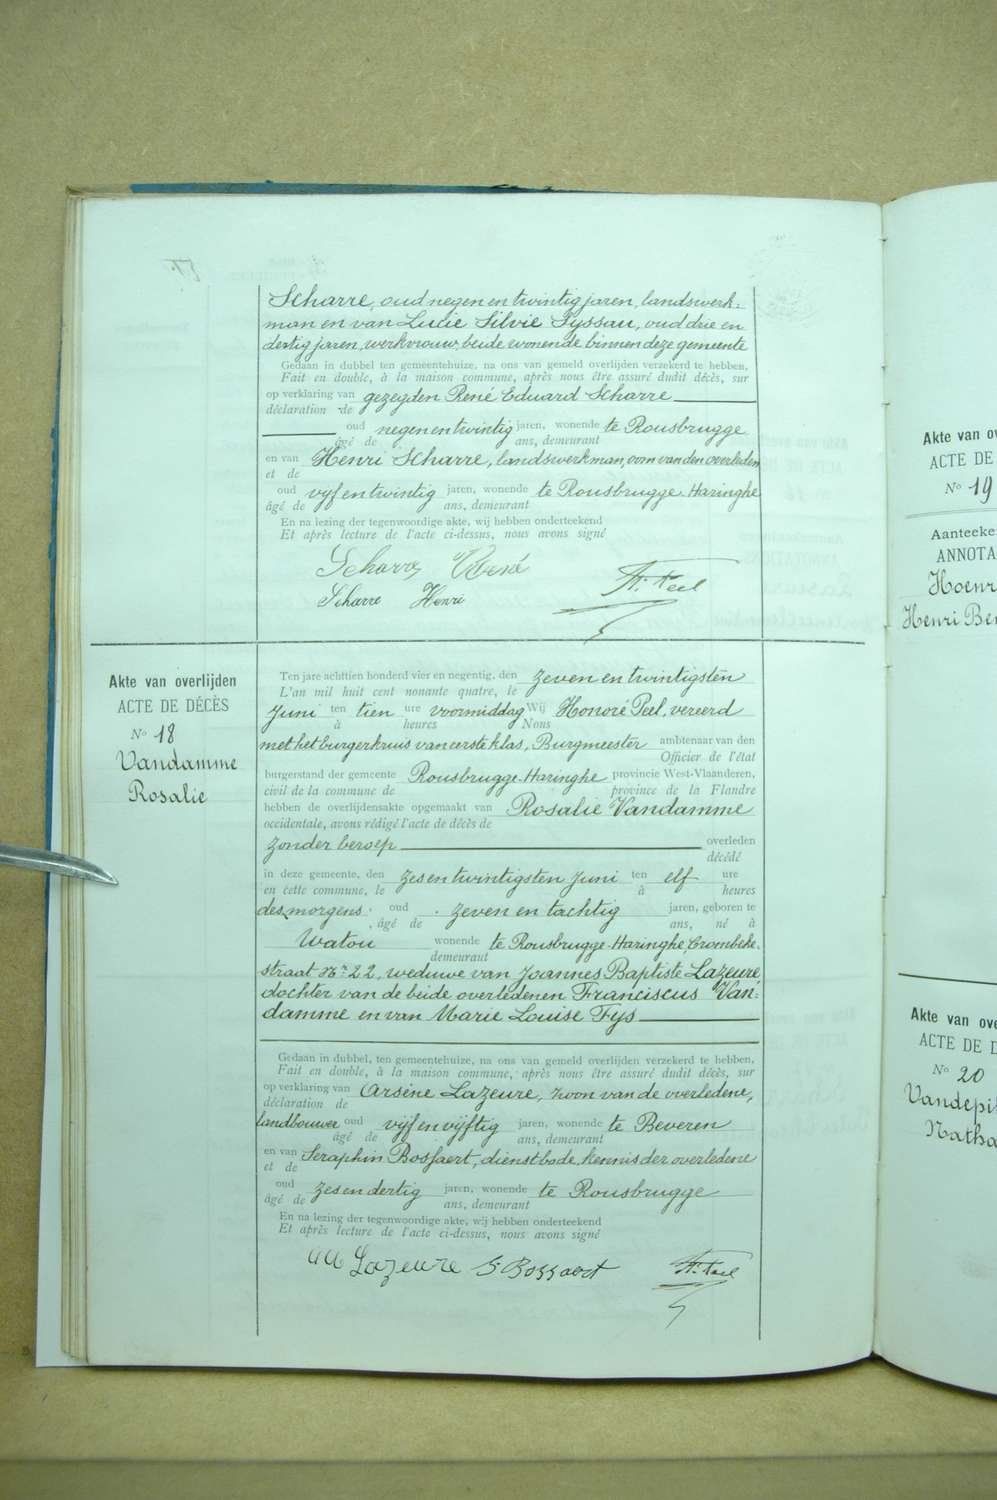 Scharre, oud negen en twintig jaren, landswerk-
man en van Lucie Silvie Syssau, oud drie en
dertig jaren, werkvrouw, beide wonende binnen deze gemeente
Gedaan in dubbel ten gemeentehuize, na ons van gemeld overlijden verzekerd te hebben,
Fait en double, à la maison commune, après nous être assuré dudit décès, sur
op verklaring van gezegden René Eduard Scharre
déclaration de
oud negen en twintig jaren, wonende te Rousbrugge
âgé de ans, demeurant
en van Henri Scharre, landswerkman, oom van den overleden
et de
oud vijf en twintig jaren, wonende te Rousbrugge-Haringhe
âgé de ans, demeurant
En na lezing der tegenwoordige akte, wij hebben onderteekend
Et après lecture de l'acte ci-dessus, nous avons signé
Scharre René
Scharre Henri
H. Peel
Akte van overlijden
ACTE DE DÉCÈS
No 18
Vandamme
Rosalie
Ten jare achttien honderd vier en negentig, den zeven en twintigsten
L'an mil huit cent nonante quatre, le
Juni ten tien ure voormiddag Wij Honoré Peel, vereerd
à heures Nous
met het burgerkruis van eerste klas, Burgmeester ambtenaar van den
Officier de l'état
burgerstand der gemeente Rousbrugge-Haringhe provincie West-Vlaanderen,
civil de la commune de province de la Flandre
hebben de overlijdensakte opgemaakt van Rosalie Vandamme
occidentale, avons rédigé l'acte de décès de
zonder beroep overleden
décédé
in deze gemeente, den zes en twintigsten Juni ten elf ure
en cette commune, le à heures
des morgens oud zeven en tachtig jaren, geboren te
âgé de ans, né à
Watou wonende te Rousbrugge-Haringhe Crombeke-
demeurant
straat No 22, weduwe van Joannes Baptiste Lazeure,
dochter van de beide overledenen Franciscus Van-
damme en van Marie Louise Fys
Gedaan in dubbel, ten gemeentehuize, na ons van gemeld overlijden verzekerd te hebben,
Fait en double, à la maison commune, après nous être assuré dudit décès, sur
op verklaring van Arsène Lazeure, zoon van de overledene,
déclaration de
landbouwer oud vijf en vijftig jaren, wonende te Beveren
âgé de ans, demeurant
en van Seraphin Bossaert, dienstbode, kennis der overledene
et de
oud zes en dertig jaren, wonende te Rousbrugge
âgé de ans, demeurant
En na lezing der tegenwoordige akte, wij hebben onderteekend
Et après lecture de l'acte ci-dessus, nous avons signé
Lazeure S. Bossaert H. Peel
Akte van ov
ACTE DE
No 19
Aanteeke
ANNOTA
Hoenr
Henri Ber
Akte van ove
ACTE DE D
No 20
Vandepit
Natha